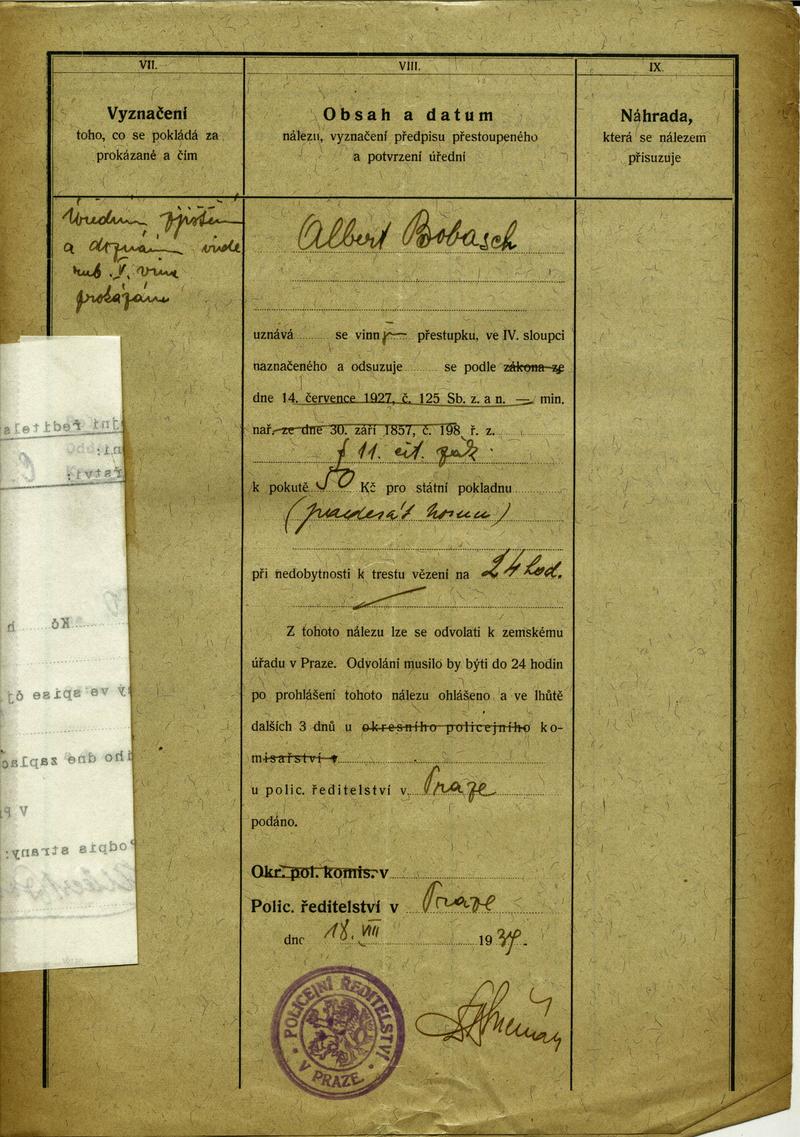 VII.
Vyznačení
toho, co se pokládá za
prokázané a čím
VIII.
Obsah a datum
nálezu, vyznačení předpisu přestoupeného
a potvrzení úřední
IX.
Náhrada,
která se nálezem
přisuzuje
Úředním zjištěn
a doznání vide
rub. V. vina
prokázána
Albert Bobasch
uznává se vinn přestupku, ve IV. sloupci
naznačeného a odsuzuje se podle zákona ze
dne 14. července 1927, č. 125 Sb. z. a n. — min.
nař. ze dne 30. září 1857, č. 198 ř. z.
§ 11. cit. zák.
k pokutě 50 Kč pro státní pokladnu
(padesát korun)
při nedobytnosti k trestu vězení na 24 hod.
Z tohoto nálezu lze se odvolati k zemskému
úřadu v Praze. Odvolání musilo by býti do 24 hodin
po prohlášení tohoto nálezu ohlášeno a ve lhůtě
dalších 3 dnů u okresního policejního ko-
misařství v
u polic. ředitelství v Praze
podáno.
Okr. pol. komis. v
Polic. ředitelství v Praze
dne 18. VIII 1937.
POLICEJNÍ ŘEDITELSTVÍ
V PRAZE
Kč h
ve spise
dne zapla
V P
Podpis strany: